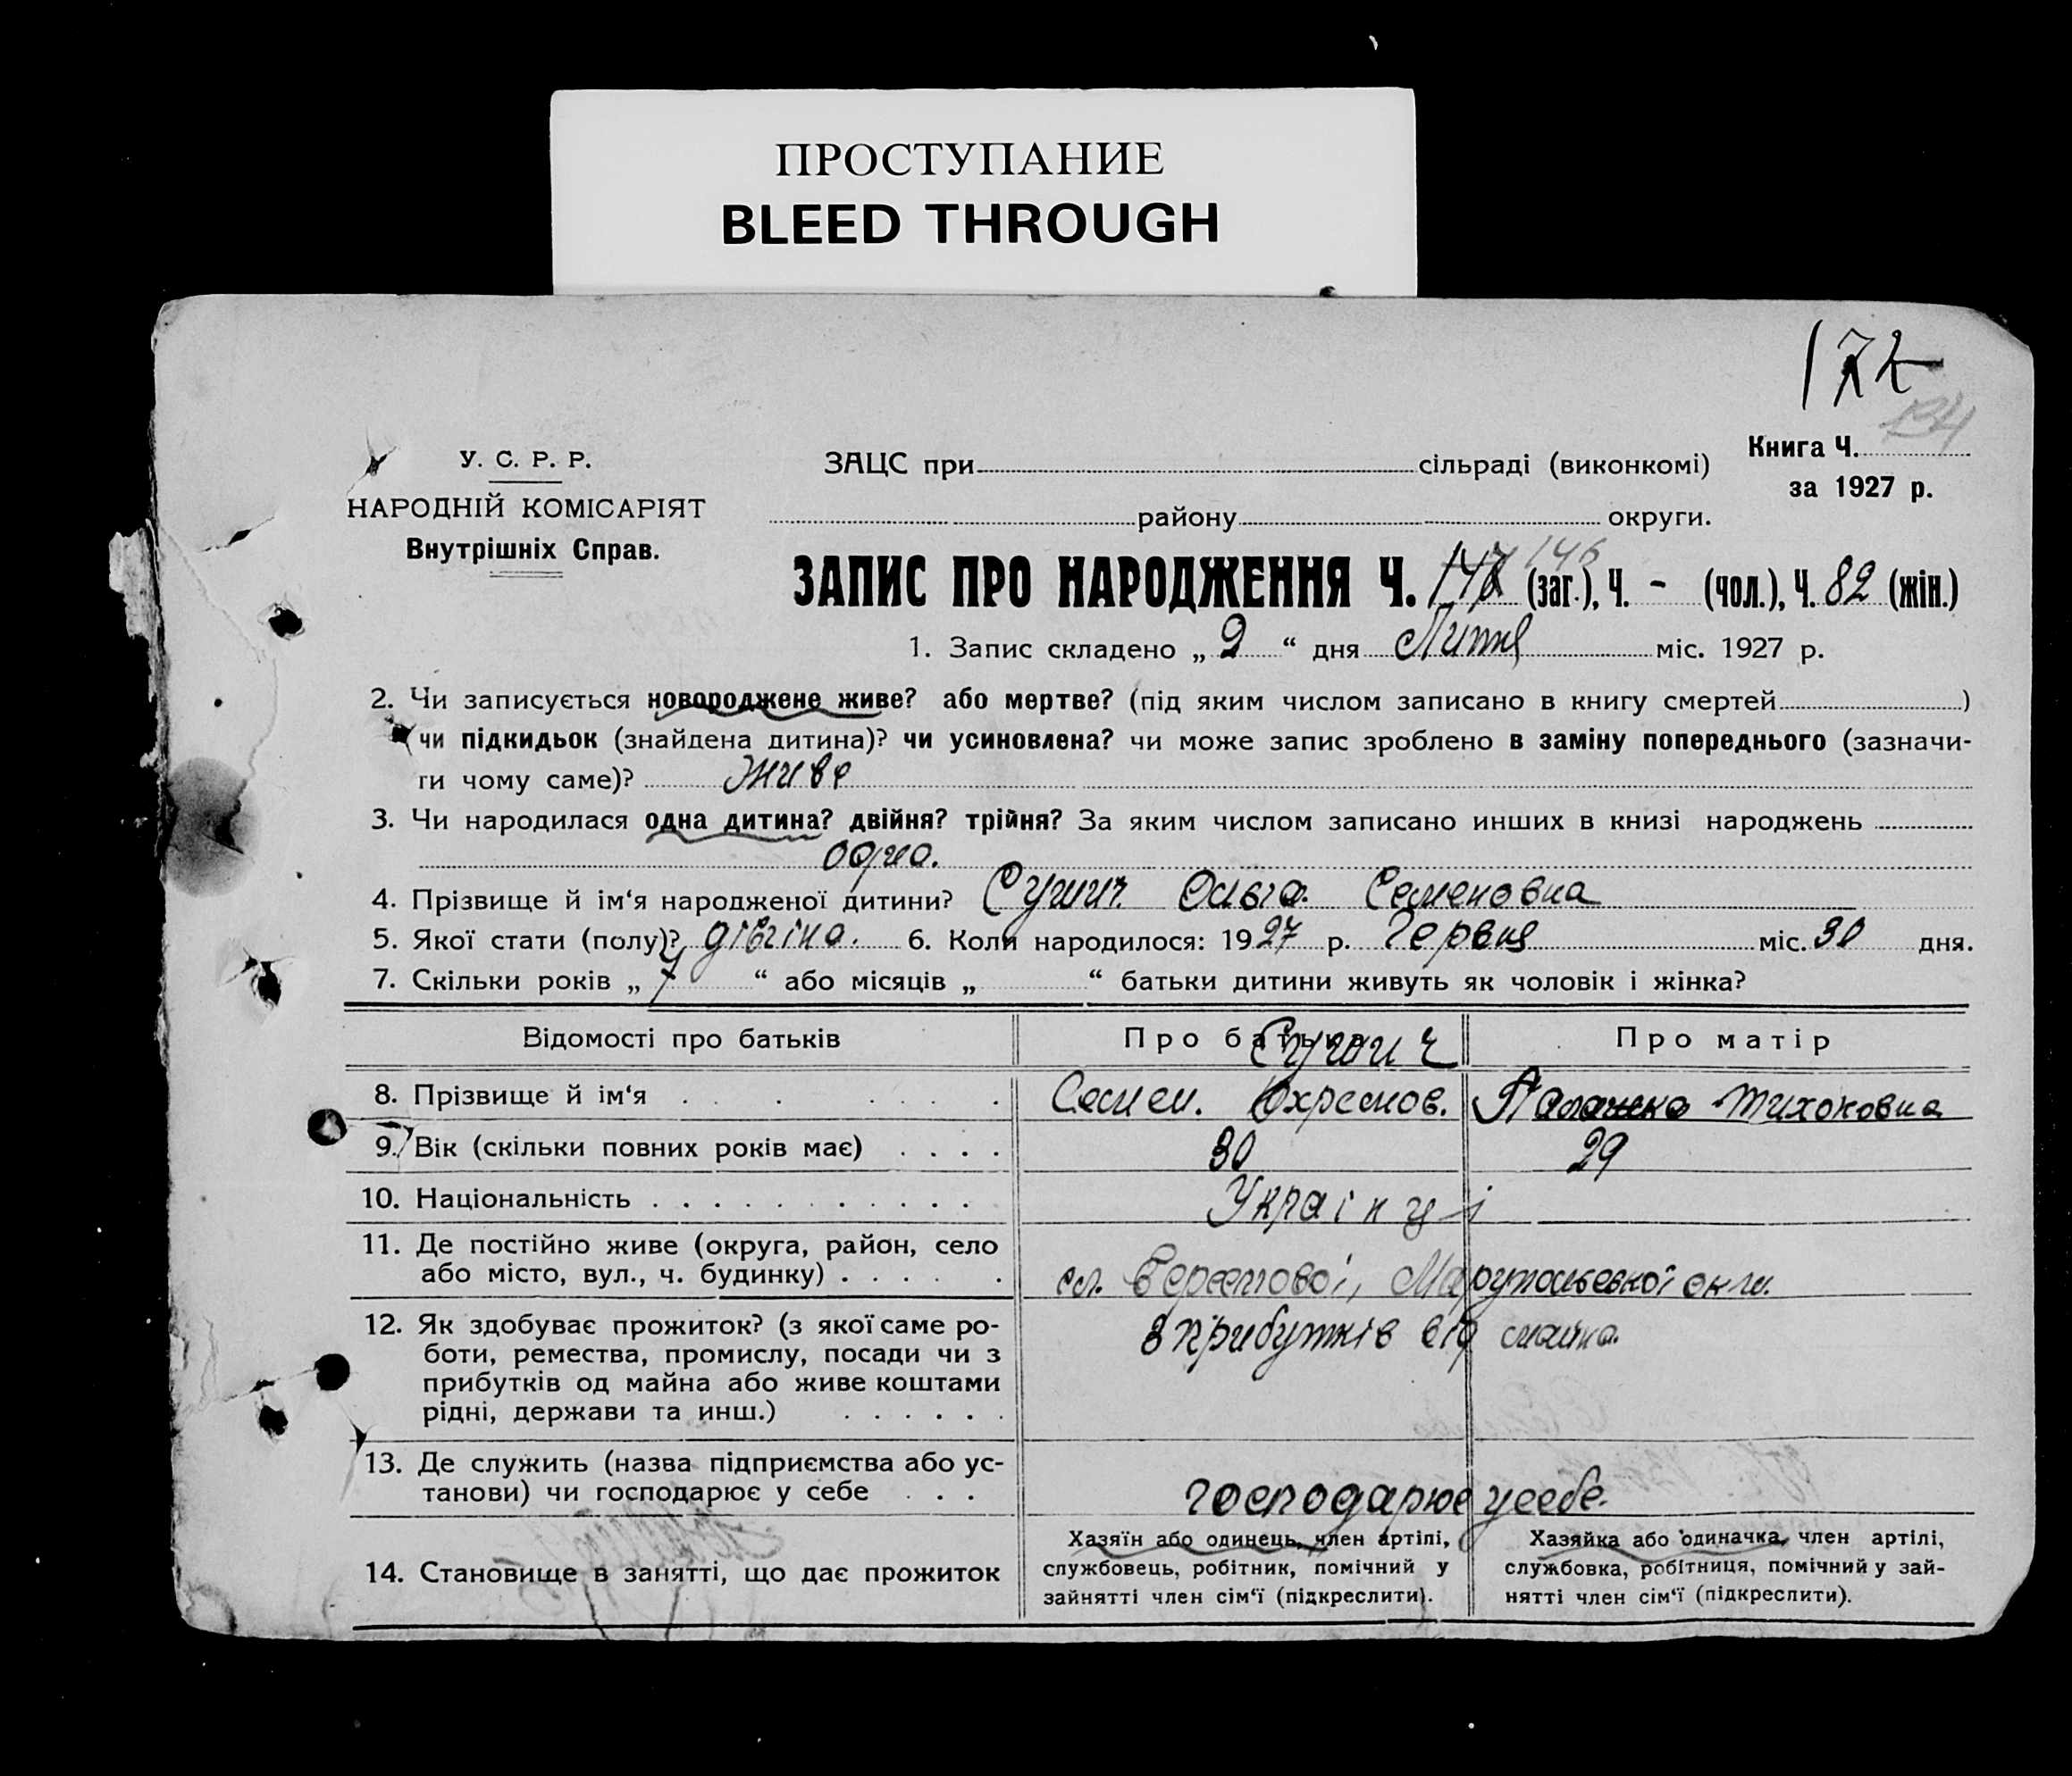 ПРОСТУПАНИЕ
BLEED THROUGH
172
134
У. С. Р. Р.
НАРОДНІЙ КОМІСАРІЯТ
Внутрішніх Справ.
ЗАЦС при сільраді (виконкомі)
Книга Ч.
за 1927 р.
району округи.
ЗАПИС ПРО НАРОДЖЕННЯ Ч. 147 146 (заг.), Ч. - (чол.), Ч. 82 (жін.)
1. Запис складено „ 9 “ дня Липня міс. 1927 р.
2. Чи записується новороджене живе? або мертве? (під яким числом записано в книгу смертей )
(чи підкидьок (знайдена дитина)? чи усиновлена? чи може запис зроблено в заміну попереднього (зазначи-
ти чому саме)? живе
3. Чи народилася одна дитина? двійня? трійня? За яким числом записано инших в книзі народжень
одна.
4. Прізвище й ім‘я народженої дитини? Сушич Ольга Семеновна
5. Якої стати (полу)? дівчина. 6. Коли народилося: 1927 р. Червця міс. 30 дня.
7. Скільки років „ 7 “ або місяців „ “ батьки дитини живуть як чоловік і жінка?
Відомості про батьків Про батька Про матір
Сушич
8. Прізвище й ім‘я Семен. Юхремов. Тихоновна
9. Вік (скільки повних років має) 30 29
10. Національність Українці
11. Де постійно живе (округа, район, село
або місто, вул., ч. будинку) сл. Берестової, Маріупольської окр.
12. Як здобуває прожиток? (з якої саме ро-
боти, ремества, промислу, посади чи з
прибутків од майна або живе коштами
рідні, держави та инш.)
з прибутків від майна
13. Де служить (назва підприємства або ус-
танови) чи господарює у себе господарює у себе.
14. Становище в занятті, що дає прожиток
Хазяїн або одинець, член артілі,
службовець, робітник, помічний у
зайнятті член сім‘ї (підкреслити).
Хазяйка або одиначка, член артілі,
службовка, робітниця, помічний у зай-
нятті член сім‘ї (підкреслити).